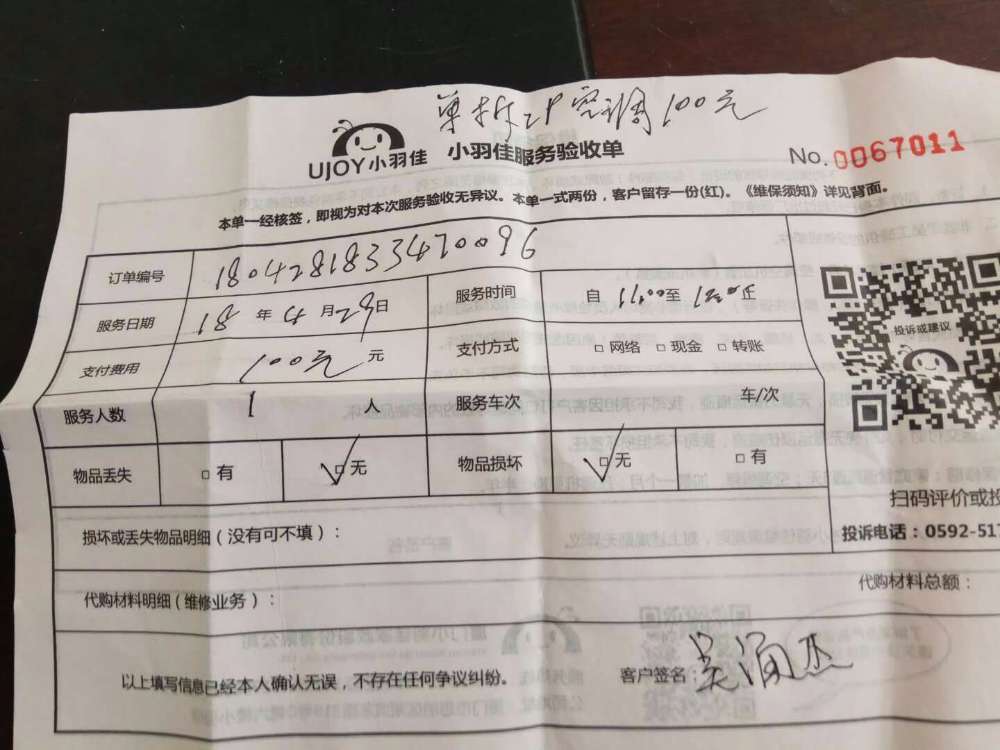 单拆2P空调100元
UJOY小羽佳 小羽佳服务验收单 No.0067011
本单一经核签，即视为对本次服务验收无异议。本单一式两份，客户留存一份(红)。《维保须知》详见背面。
订单编号
服务日期 18 年 月 29日 服务时间 自 至 止
支付费用 100元 元 支付方式 □ 网络 □ 现金 □ 转账
服务人数 1 人 服务车次 车/次
物品丢失 □ 有 ✓□ 无 物品损坏 ✓□ 无 □ 有
投诉或建议
扫码评价或投
损坏或丢失物品明细（没有可不填）：
投诉电话：0592-511
代购材料明细（维修业务）：
代购材料总额：
以上填写信息已经本人确认无误，不存在任何争议纠纷。 客户签名：吴涌杰